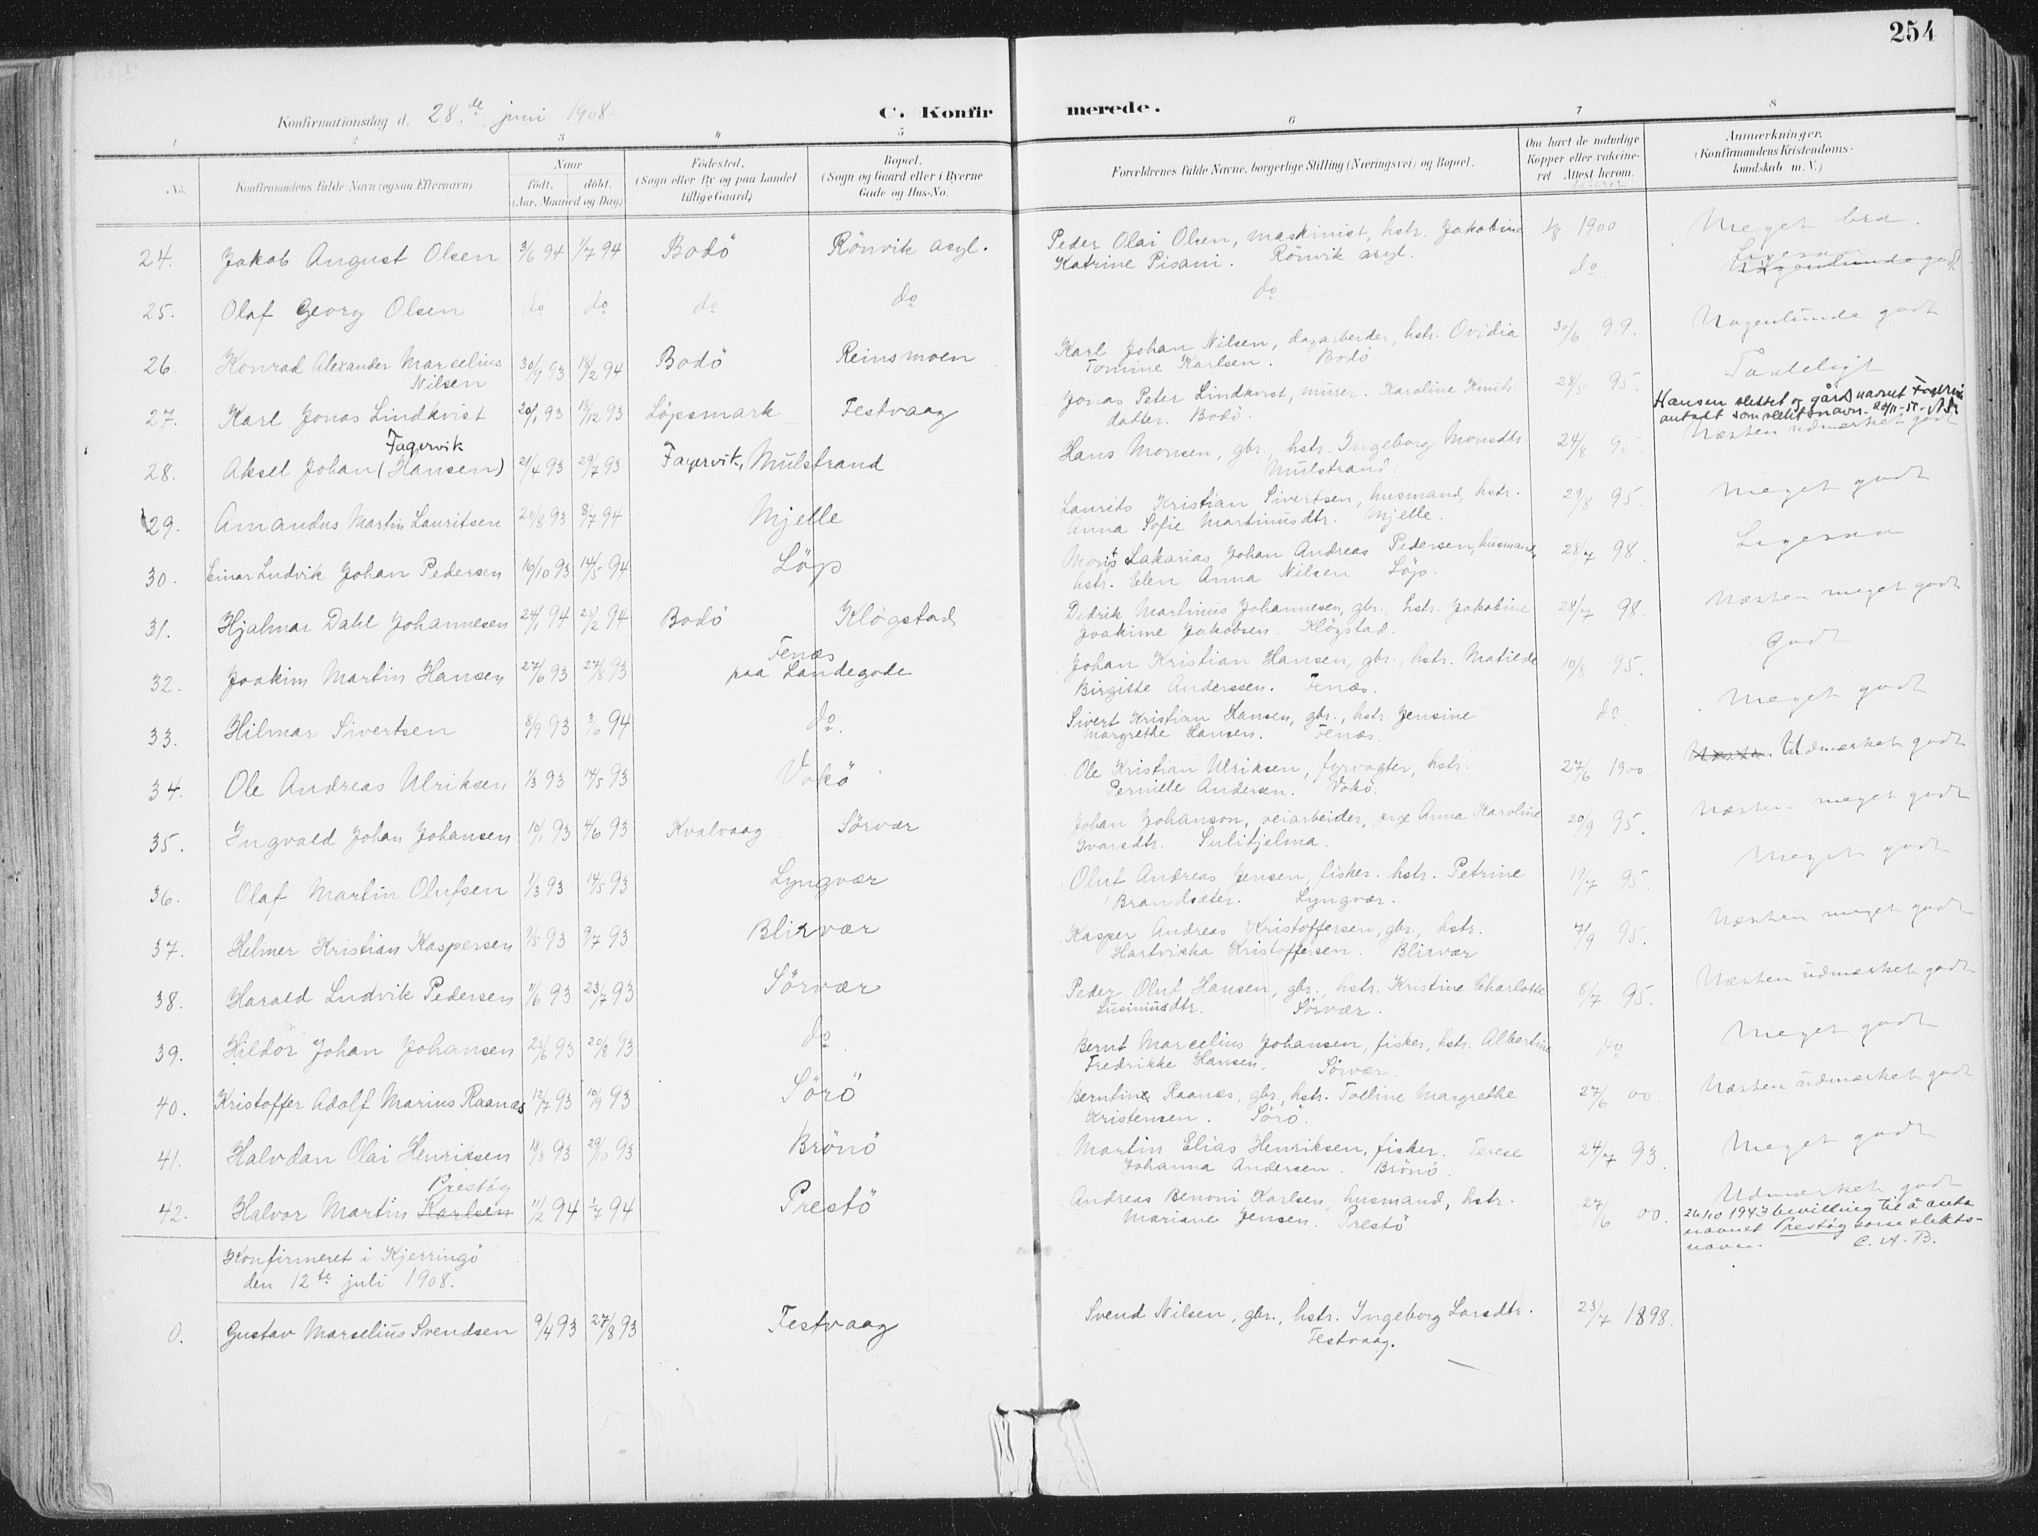 254
Konfirmationsdag d. 28.de juni 1908.
C. Konfirmerede.
1 2 3 4 5 6 7 8
No.
Konfirmandens fulde Navn (ogsaa Efternavn)
Naar
født. døbt.
(Aar, Maaned og Dag)
Fødested.
(Sogn eller By og paa Landet
tillige Gaard)
Bopæl.
(Sogn og Gaard eller i Byerne
Gade og Hus-No.
Forældrenes fulde Navne, borgerlige Stilling (Næringsvei) og Bopæl.
Om havt de naturlige
Kopper eller vaccine-
ret Attest herom.
Anmærkninger.
(Konfirmandens Kristendoms-
kundskab m. V.)
24. Jakob August Olsen 3/6 94 1/7 94 Bodö Rönvik asyl. Peder Olai Olsen, maskinist, hstr. Jakobine 1/8 1900 Meget bra.
Katrine Pisani. Rönvik asyl.
25. Olaf Georg Olsen do do do do do do Ligesaa
26. Konrad Alexander Marselius 30/9 93 18/2 94 Bodö Reinsmoen Karl Johan Nilsen, dagarbeider, hstr. Ovidia 30/6 99. Nogenlunde godt
Nilsen Tomine Karlsen. Bodö
27. Karl Jonas Lindkvist 20/1 93 18/12 93 Löpsmark Festvaag Jonas Peter Lindkvist, murer. Karoline Knuts- 28/5 95. Taaleligt
datter. Bodö.
Hansen slettet og gårdsnavnet Fagervik
antatt som slektsnavn.
28. Aksel Johan (Hansen) Fagervik 21/4 93 29/7 93 Fagervik, Mulstrand Hans Monsen, gbr., hstr. Ingeborg Monsdtr. 24/8 95 Næsten udmærket godt
Mulstrand.
29. Amandus Martin Lauritsen 20/8 93 8/7 94 Mjelle Laurits Kristian Sivertsen, husmand, hstr. 29/8 95. Meget godt
Anna Sofie Martinusdtr. Mjelle.
30. Einar Ludvik Johan Pedersen 16/10 93 14/5 94 Löp Sakarias Johan Andreas Pedersen, husmand, 28/7 98. Ligesaa
hstr. Elen Anna Nilsen. Löp.
31. Hjalmar Dahl Johannesen 24/1 94 25/2 94 Bodö Klögstad Didrik Martinus Johannesen, gbr., hstr. Jakobine 28/7 98. Næsten meget godt
Joakime Jakobsen. Klögstad.
32. Joakim Martin Hansen 27/6 93 27/8 93 Fenæs Johan Kristian Hansen, gbr., hstr. Matilde 10/8 95. Godt
paa Landegode Birgitte Anderssen. Fenæs.
33. Hilmar Sivertsen 8/9 93 3/6 94 do. Sivert Kristian Hansen, gbr., hstr. Jensine do Meget godt
Margrethe Hansen. Fenæs.
34. Ole Andreas Ulriksen 1/3 93 14/5 93 Vokö Ole Kristian Ulriksen, fyrvogter, hstr. 27/6 1900. Næsten Udmærket godt
Pernille Andersen. Vokö.
35. Ingvald Johan Johansen 14/1 93 4/6 93 Kvalvaag Sörvær Johan Johanson, veiarbeider, pige Anna Karoline 20/9 95. Næsten meget godt
Ivarsdtr. Sulitjelma.
36. Olaf Martin Olufsen 1/3 93 14/5 93 Lyngvær Oluf Andreas Jensen, fisker. hstr. Petrine 19/7 95. Meget godt
Brandsæter. Lyngvær.
37. Helmer Kristian Kaspersen 9/5 93 9/7 93 Blixvær Kasper Andreas Kristoffersen, gbr., hstr. 7/9 95. Næsten meget godt
Hartvikka Kristoffersen. Blixvær
38. Harald Ludvik Pedersen 11/6 93 23/7 93 Sörvær Peder Oluf Hansen, gbr., hstr. Kristine Charlotte 8/7 95. Næsten udmærket godt
Lusiniusdtr. Sörvær.
39. Hildor Johan Johansen 25/6 93 20/8 93 do. Bernt Marcelius Johansen, fisker, hstr. Albertine do Meget godt
Fredrikke Hansen. Sörvær.
40. Kristoffer Adolf Marius Raanæs 12/7 93 10/9 93 Sörö Berntine Raanæs, gbr., hstr. Toeline Margrethe 27/6 00. Næsten udmærket godt
Kristensen. Sörö.
41. Halvdan Olai Henriksen 18/8 93 29/10 93 Brönö Martin Elias Henriksen, fisker. Terese 24/7 93. Meget godt
Johanna Andersen. Brönö.
Prestøy
42. Halvor Martin Karlsen 11/2 94 1/7 94 Prestö Andreas Benoni Karlsen, husmand, hstr. 27/6 00. Udmærket godt
Mariane Jensen. Prestö
26/10 1943 bevilling til å anta
navnet Prestøy som slekts-
navn. C. A. B.
Konfirmeret i Kjerringö
den 12te juli 1908.
0. Gustav Marselius Svendsen 9/4 93 27/8 93 Festvaag Svend Nilsen, gbr., hstr. Ingeborg Larsdtr. 23/7 1898.
Festvaag.